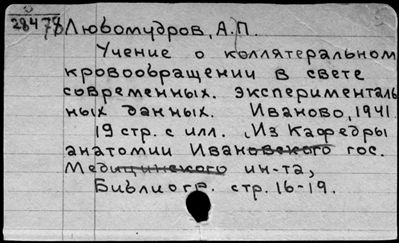 28478
Любомудров, А.П.
Учение о коллятеральном
кровообращении в свете
современных. эксперименталь
ных данных. Иваново, 1941.
19 стр. с илл. Из Кафедры
анатомии Ивановского гос.
Медицинского ин-та,
Библиогр. стр. 16-19.